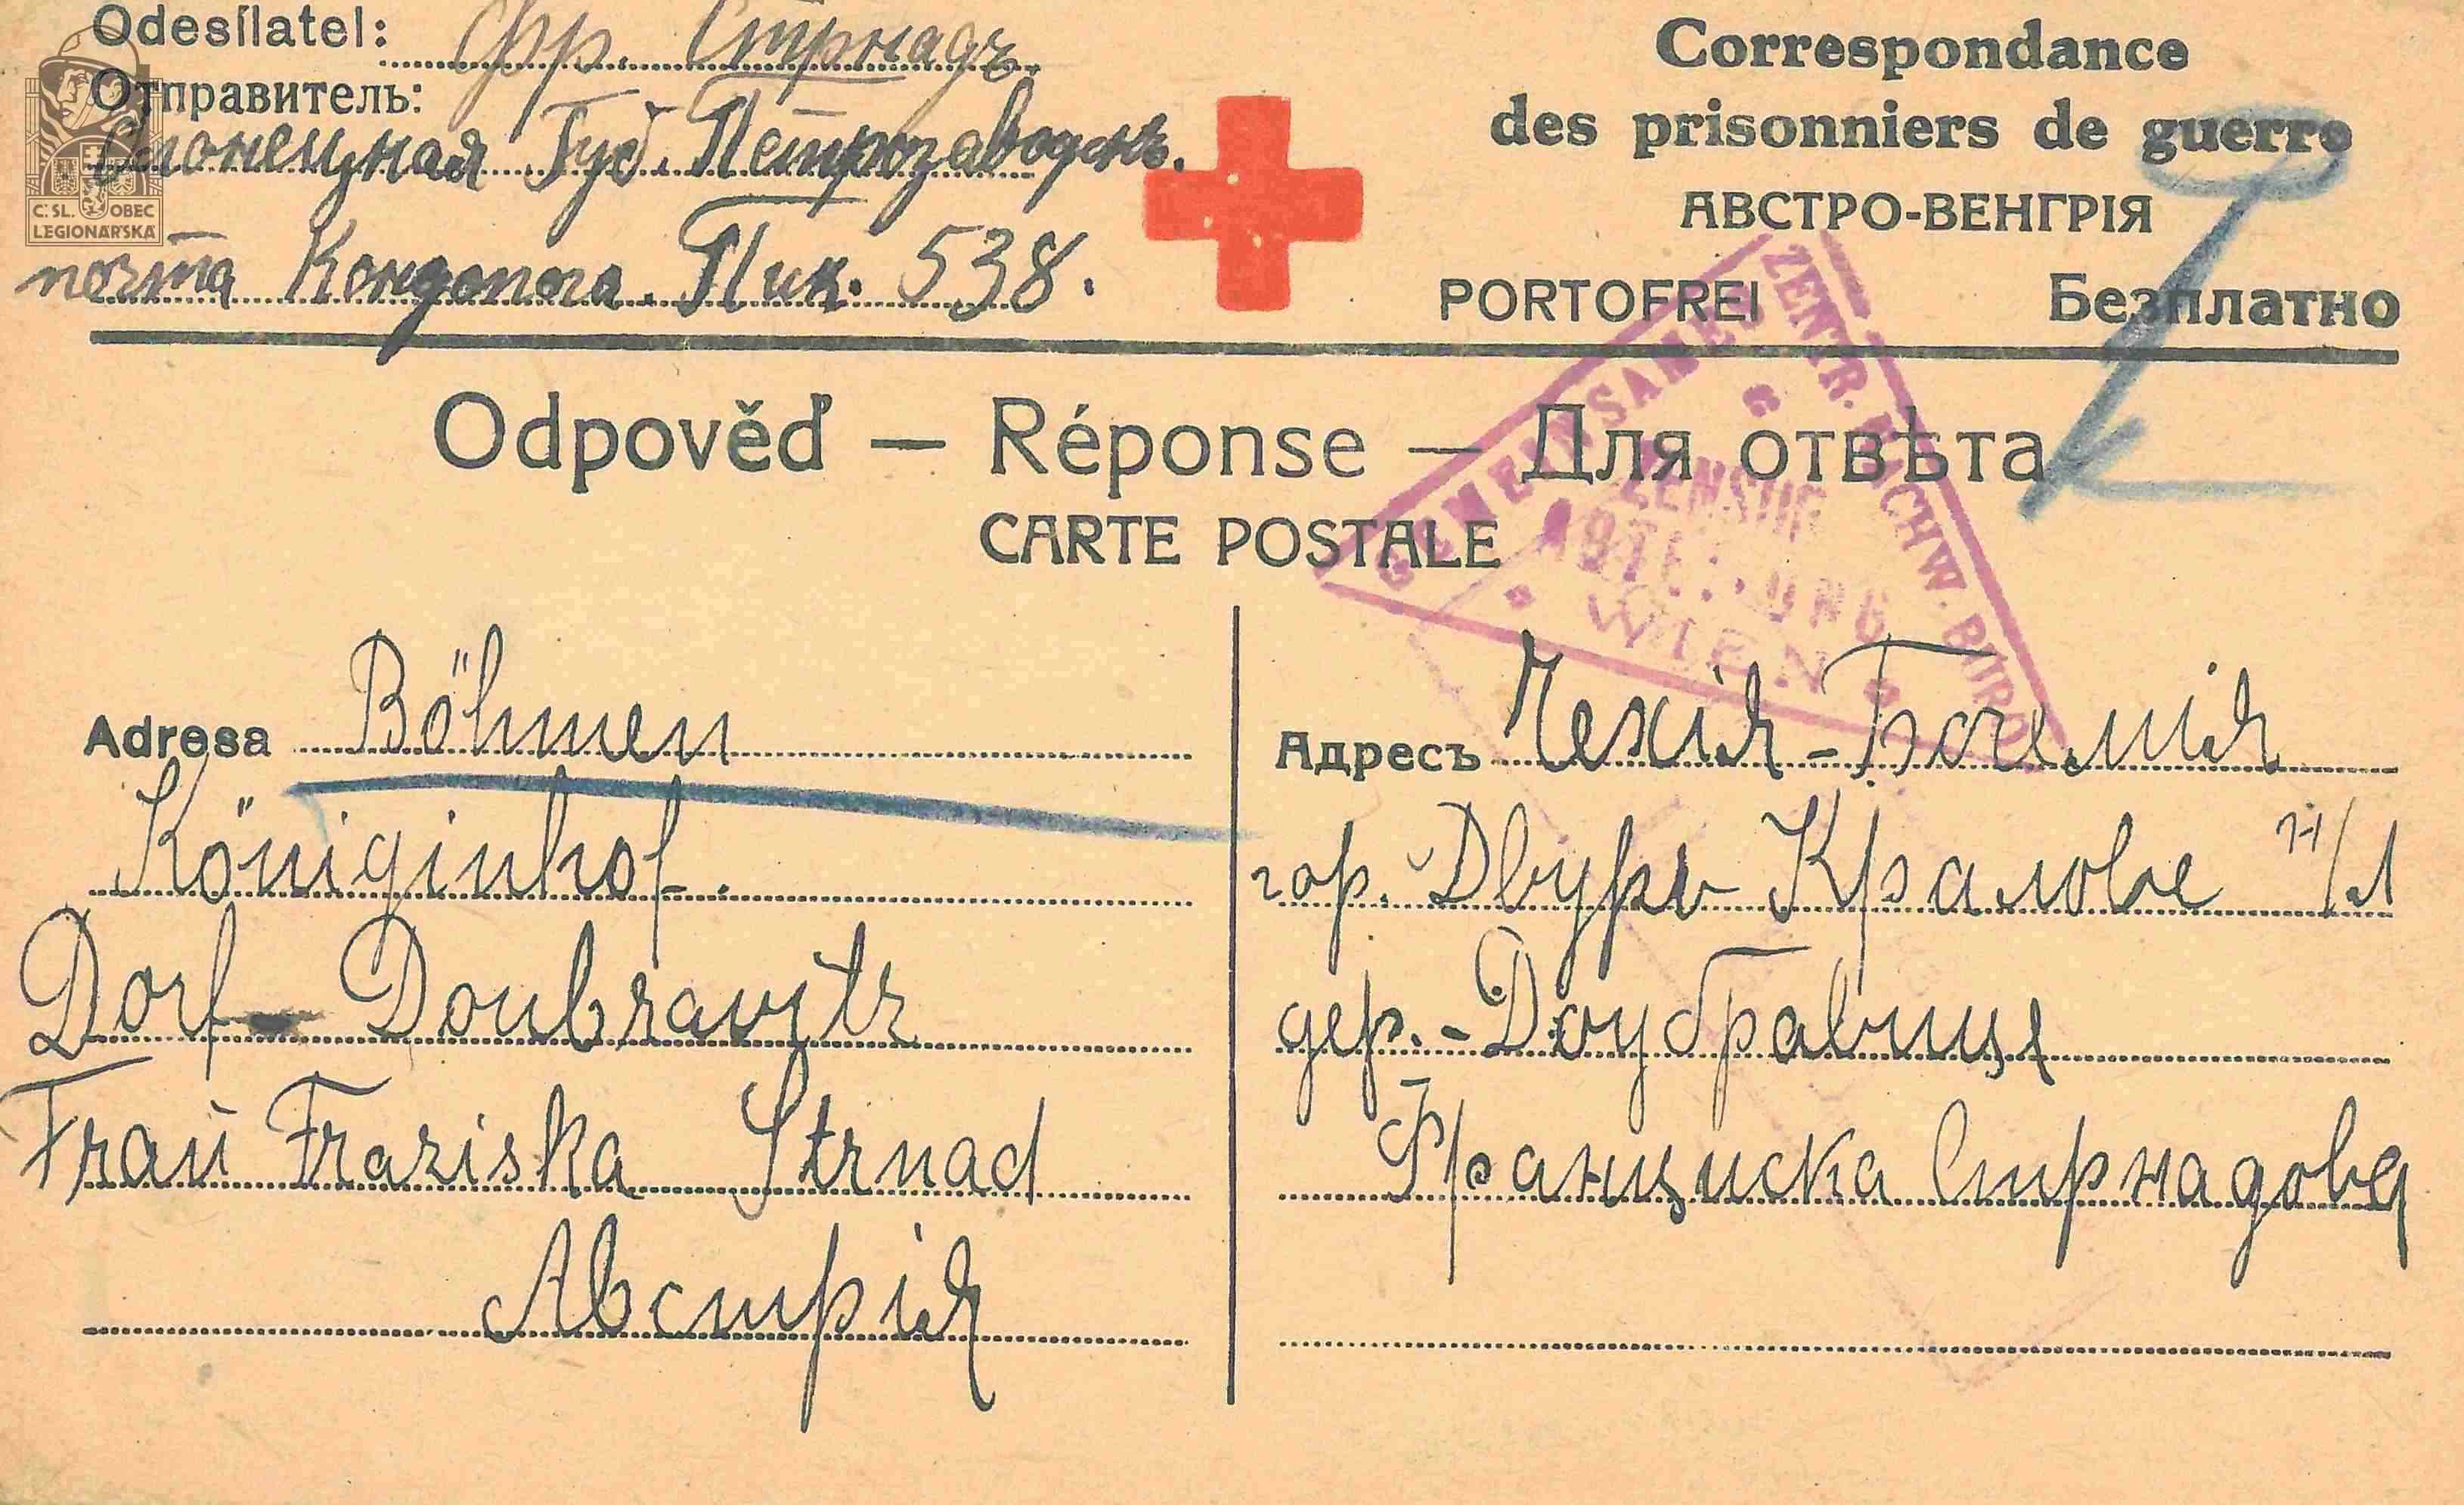 Odesílatel: Фр. Стрнадъ
Отправитель:
Олонецкая Губ. Петрозаводскъ.
почта Кондопога. Пик. 538.
C: SL. OBEC
LEGIONÁŘSKÁ
Correspondance
des prisonniers de guerre
АВСТРО-ВЕНГРІЯ
PORTOFREI Безплатно
Odpověď — Réponse — Для отвѣта
CARTE POSTALE
GEMEINSAMES ZENTR. NACHW. BÜRO
ZENSUR
ABTEILUNG
WIEN
Adresa Böhmen
Königinhof.
Dorf - Doubravitz
Frau Fraziska Strnad
Австрія
Адресъ Чехія - Богемія
гор. Двуръ Кралове н/Л
дер. - Доубравице
Франциска Стрнадова